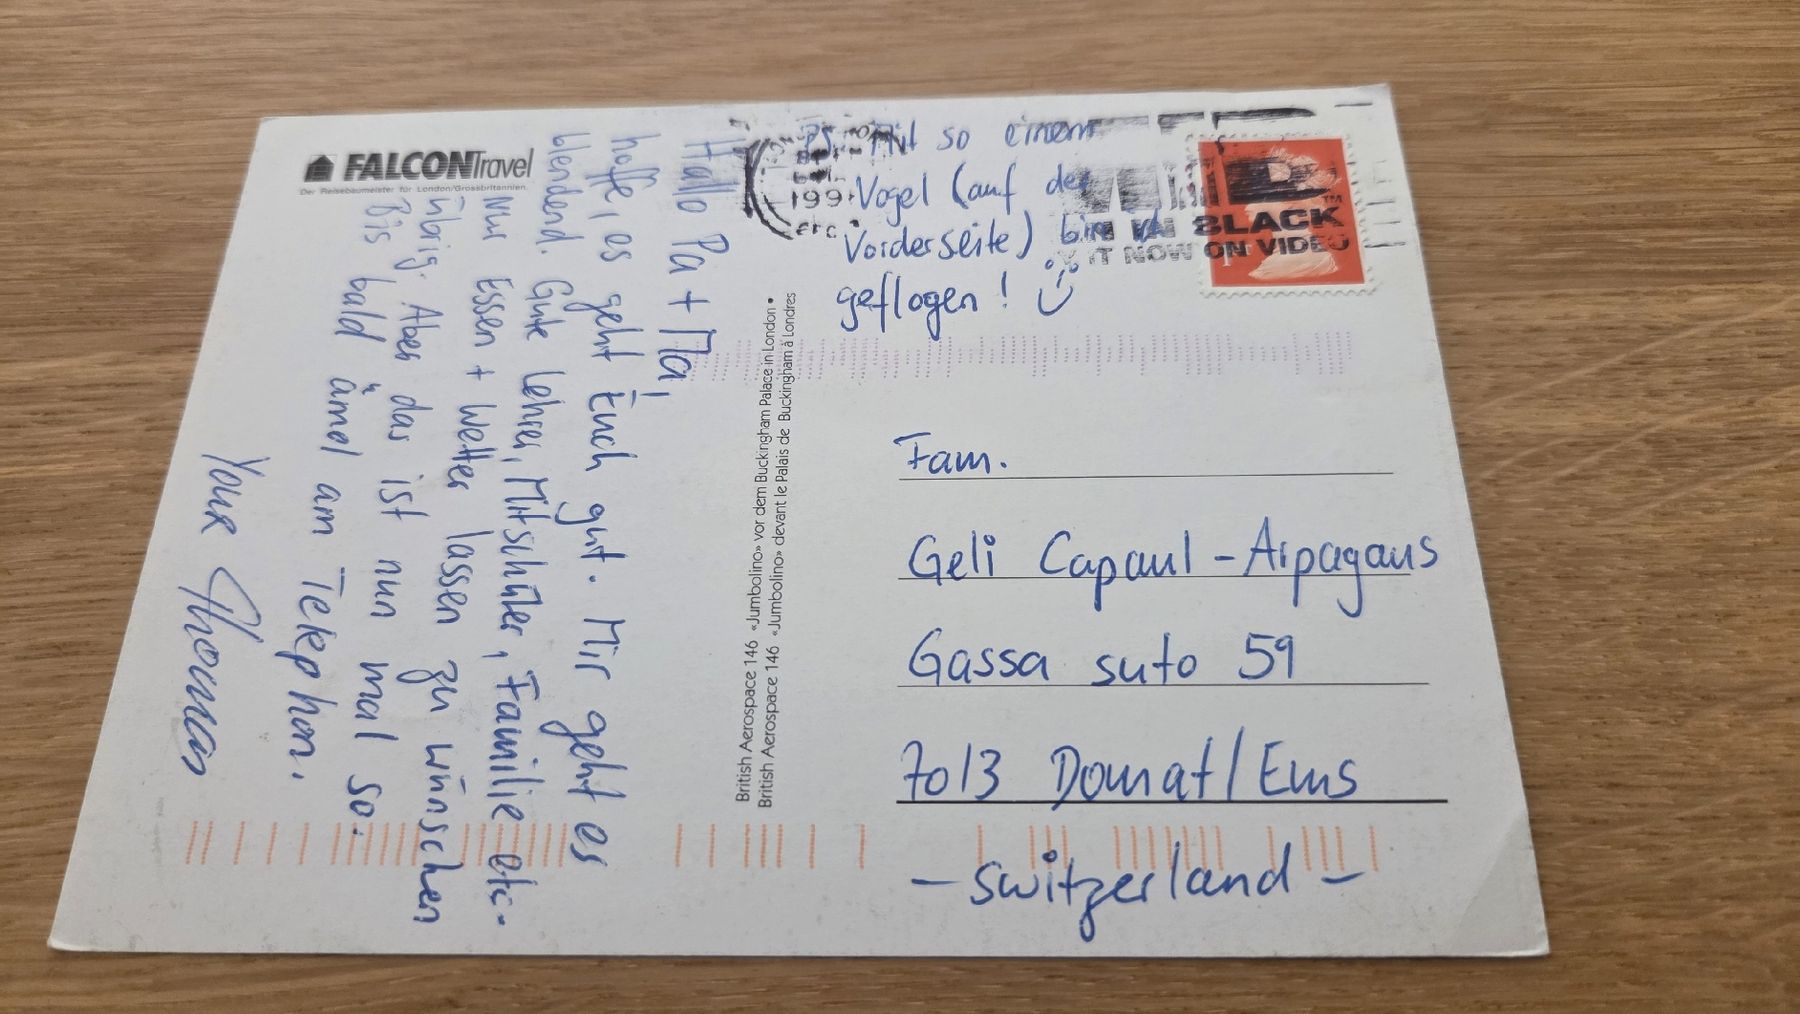 FALCONTravel
Der Reisebaumeister für London/Grossbritannien.
Hallo Pa + Ma,
hoffe, es geht Euch gut. Mir geht es
blendend. Gute Lehrer, Mitschüler, Familie etc.
Nur Essen + Wetter lassen zu wünschen
übrig. Aber das ist nun mal so.
Bis bald ämel am Telephon.
Your Thomas
British Aerospace 146 «Jumbolino» vor dem Buckingham Palace in London •
British Aerospace 146 «Jumbolino» devant le Palais de Buckingham à Londres
PS. Mit so einem
Vogel (auf der
Vorderseite) bin ich
geflogen!
199
IN BLACK
IT NOW ON VIDEO
Fam.
Geli Capaul-Arpagaus
Gassa suto 59
7013 Domat/Ems
- Switzerland -